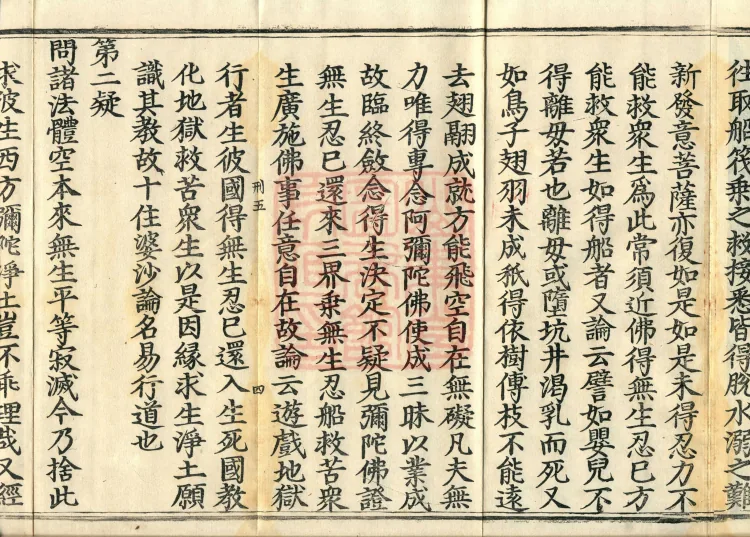 往取船筏乗之救接悉皆得脫水溺之難
新發意菩薩亦復如是如是未得忍力不
能救衆生爲此常須近佛得無生忍已方
能救衆生如得船者又論云譬如嬰兒不
得離母若也離母或墮坑井渴乳而死又
如鳥子翅羽未成秪得依樹傳技不能遠
去翅翮成就方能飛空自在無礙凡夫無
力唯得專念阿彌陀佛使成三昧以業成
故臨終斂念得生決定不疑見彌陀佛證
無生忍已還來三界乗無生忍船救苦衆
生廣施佛事任意自在故論云遊戲地獄
刑五 四
行者生彼國得無生忍已還入生死國教
化地獄救苦衆生以是因緣求生淨土願
識其教故十住婆沙論名易行道也
第二疑
問諸法體空本來無生平等寂滅今乃捨此
求彼生西方彌陀淨土豈不乖理哉又經